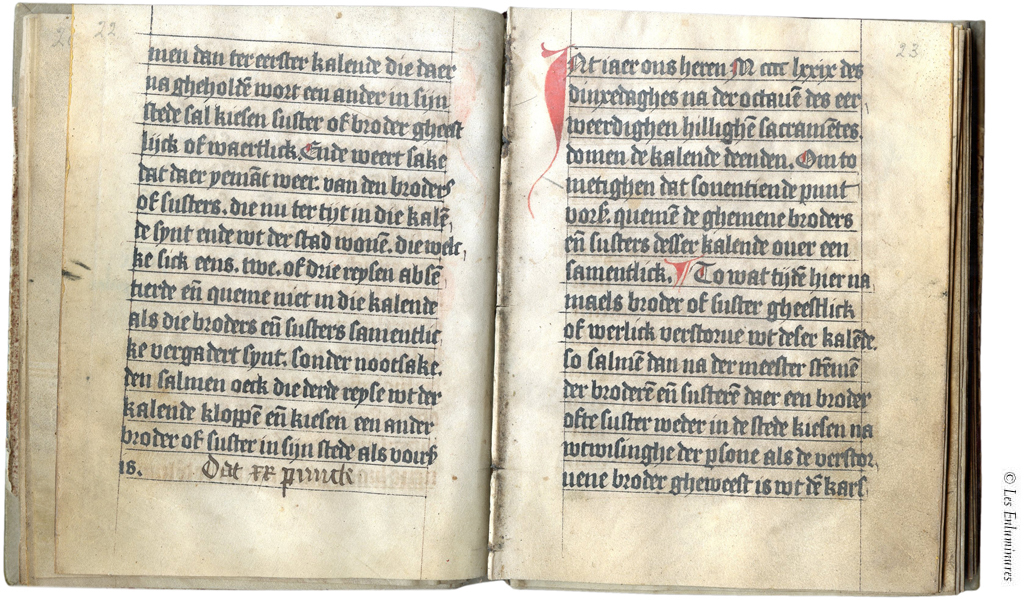 22
men dan ter eerster kalende die daer
na gheholdē wort een ander in sijn
stede sal kiesen suster of broder gheest
lijck of waertlick. Ende weert sake
dat daer yemāt weer. van den broders
of susters. die nu ter tijt in die kalē,
de synt ende wt der stad wonē. die welc,
ke sick eens. twe. of drie reysen absē
tierde eñ queme niet in die kalende
als die broders eñ susters samentlic
ke vergadert synt. sonder nootsake.
den salmen oeck die derde reyse wt der
kalende kloppē eñ kiesen een ander
broder of suster in sijn stede als vorß
is. Dat xx punck
23
INt iaer ons heren M cccc lxxix des
dinxedaghes na der octauē des eer,
weerdighen hillighē sacramētes.
domen de kalende deenden. Om to
metighen dat souentiende punt
vorß. quemē de ghemene broders
eñ susters desser kalende ouer een
samentlick. To wat tijdē hier na,
maels broder of suster gheestlick
of werlick verstorue wt deser kalēde.
so salmē dan na der meester stēmē
der broderē eñ susterē daer een broder
ofte suster weder in de stede kiesen na
wtwisinghe der psone als de verstor,
uene broder gheweest is wt dē kars,
© Les Enluminures